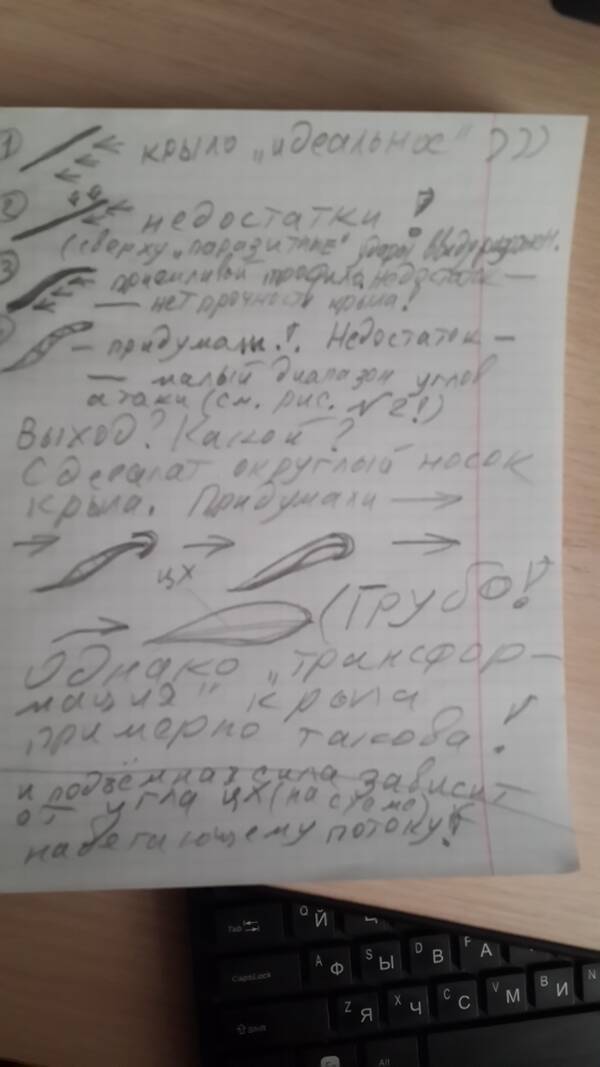 1 крыло „идеальное" )))
2 недостатки!
(сверху „паразитные"
3 профиль, недостаток —
— нет прочности крыла!
— придумали!. Недостаток —
— малый диапазон углов
атаки (см. рис. №2!)
Выход? Какой?
Сделат округлый носок
крыла. Придумали →
ЦХ
(Грубо!
Однако „трансфор-
мация" крыла
примерно такова!
и подъёмная сила зависит
от угла ЦХ (на схеме) к
набегающему потоку!
Tab
Q Й
CapsLock
A Ф
S Ы
D В
F А
Shift
Z Я
X Ч
C С
V М
B И
Alt